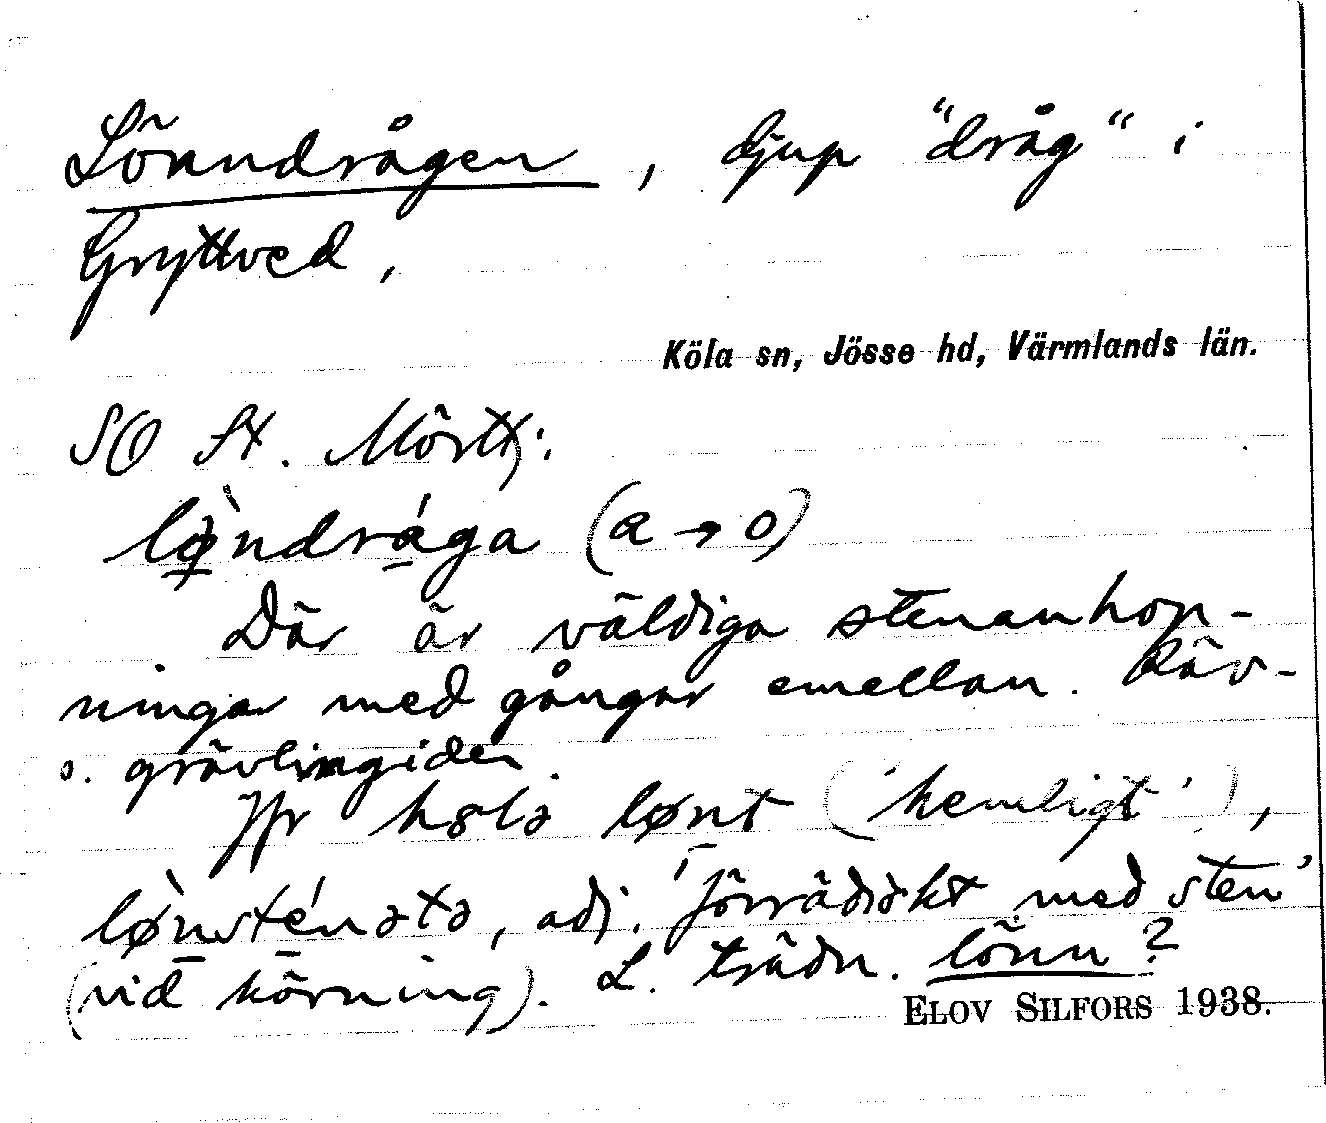 Lönndrågen, djup "dråg" i
Gryttved,
Köla sn, Jösse hd, Värmlands län.
SO St. Mörtt;:
lø̀ndrága (a → o)
Där är väldiga stenanhop-
ningar med gångar emellan. Räv-
o. grävlingiden.
Jfr lønt ('hemligt'),
lø̀nsténətə, adj. 'förrädiskt med sten'
(vid körning). L. trädn. lönn?
ELOV SILFORS 1938.